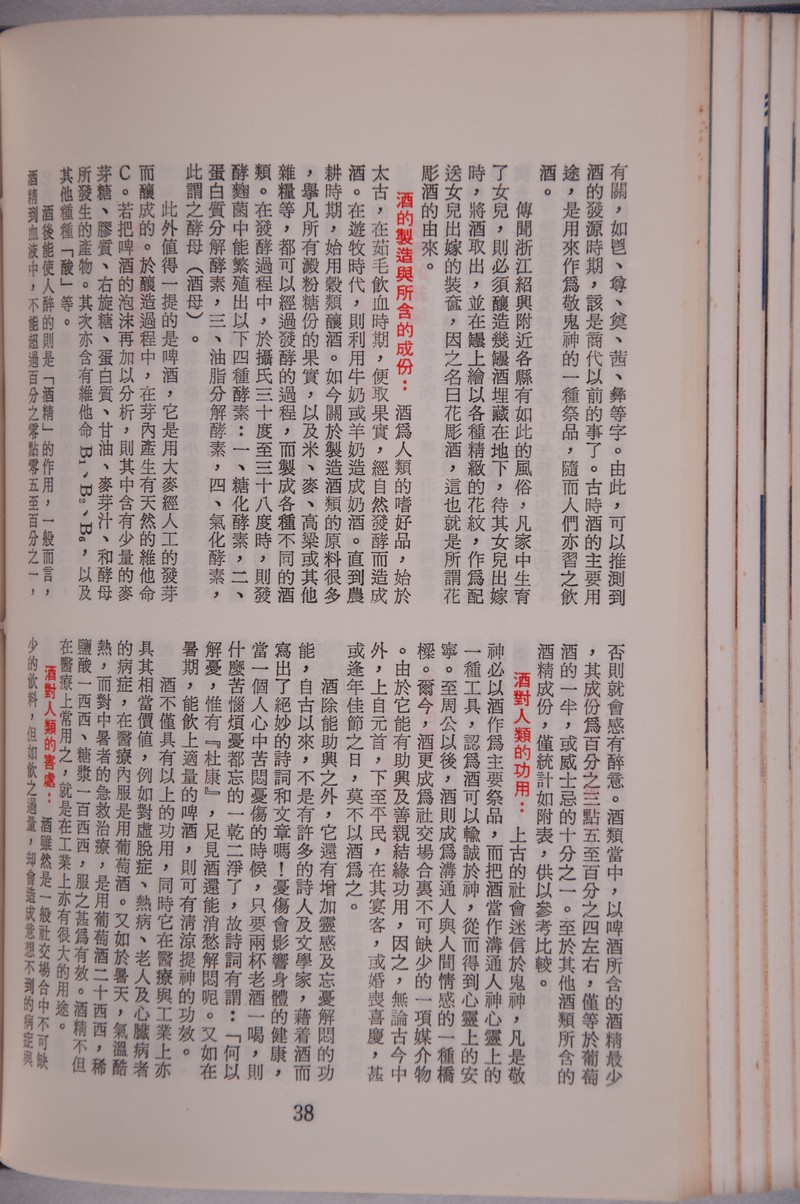 有關，如鬯、尊、奠、茜、彝等字。由此，可以推測到
酒的發源時期，該是商代以前的事了。古時酒的主要用
途，是用來作爲敬鬼神的一種祭品，隨而人們亦習之飲
酒。
傳聞浙江紹興附近各縣有如此的風俗，凡家中生育
了女兒，則必須釀造幾罎酒埋藏在地下，待其女兒出嫁
時，將酒取出，並在罎上繪以各種精緻的花紋，作爲配
送女兒出嫁的裝奩，因之名曰花彫酒，這也就是所謂花
彫酒的由來。
酒的製造與所含的成份：酒爲人類的嗜好品，始於
太古，在茹毛飲血時期，便取果實，經自然發酵而造成
酒。在遊牧時代，則利用牛奶或羊奶造成奶酒。直到農
耕時期，始用穀類釀酒。如今關於製造酒類的原料很多
，舉凡所有澱粉糖份的果實，以及米、麥、高粱或其他
雜糧等，都可以經過發酵的過程，而製成各種不同的酒
類。在發酵過程中，於攝氏三十度至三十八度時，則發
酵麴菌中能繁殖出以下四種酵素：一、糖化酵素，二、
蛋白質分解酵素，三、油脂分解酵素，四、氣化酵素，
此謂之酵母（酒母）。
此外值得一提的是啤酒，它是用大麥經人工的發芽
而釀成的。於釀造過程中，在芽內產生有天然的維他命
C。若把啤酒的泡沫再加以分析，則其中含有少量的麥
芽糖、膠質、右旋糖、蛋白質、甘油、麥芽汁、和酵母
所發生的產物。其次亦含有維他命B₁、B₂、B₆，以及
其他種種「酸」等。
酒後能使人醉的則是「酒精」的作用，一般而言，
酒精到血液中，不能超過百分之零點零五至百分之一，
否則就會感有醉意。酒類當中，以啤酒所含的酒精最少
，其成份爲百分之三點五至百分之四左右，僅等於葡萄
酒的一半，或威士忌的十分之一。至於其他酒類所含的
酒精成份，僅統計如附表，供以參考比較。
酒對人類的功用：上古的社會迷信於鬼神，凡是敬
神必以酒作爲主要祭品，而把酒當作溝通人神心靈上的
一種工具，認爲酒可以輸誠於神，從而得到心靈上的安
寧。至周公以後，酒則成爲溝通人與人間情感的一種橋
樑。爾今，酒更成爲社交場合裏不可缺少的一項媒介物
。由於它能有助興及善親結緣功用，因之，無論古今中
外，上自元首，下至平民，在其宴客，或婚喪喜慶，甚
或逢年佳節之日，莫不以酒爲之。
酒除能助興之外，它還有增加靈感及忘憂解悶的功
能，自古以來，不是有許多的詩人及文學家，藉着酒而
寫出了絕妙的詩詞和文章嗎！憂傷會影響身體的健康，
當一個人心中苦悶憂傷的時候，只要兩杯老酒一喝，則
什麼苦惱煩憂都忘的一乾二淨了，故詩詞有謂：「何以
解憂，惟有『杜康』」，足見酒還能消愁解悶呢。又如在
暑期，能飲上適量的啤酒，則可有清涼提神的功效。
酒不僅具有以上的功用，同時它在醫療與工業上亦
具其相當價值，例如對虛脫症、熱病、老人及心臟病者
的病症，在醫療內服是用葡萄酒。又如於暑天，氣溫酷
熱，而對中暑者的急救治療，是用葡萄酒二十西西，稀
鹽酸一西西、糖漿一百西西，服之甚爲有效。酒精不但
在醫療上常用之，就是在工業上亦有很大的用途。
酒對人類的害處：酒雖然是一般社交場合中不可缺
少的飲料，但如飲之過量，却會造成意想不到的病症與
38